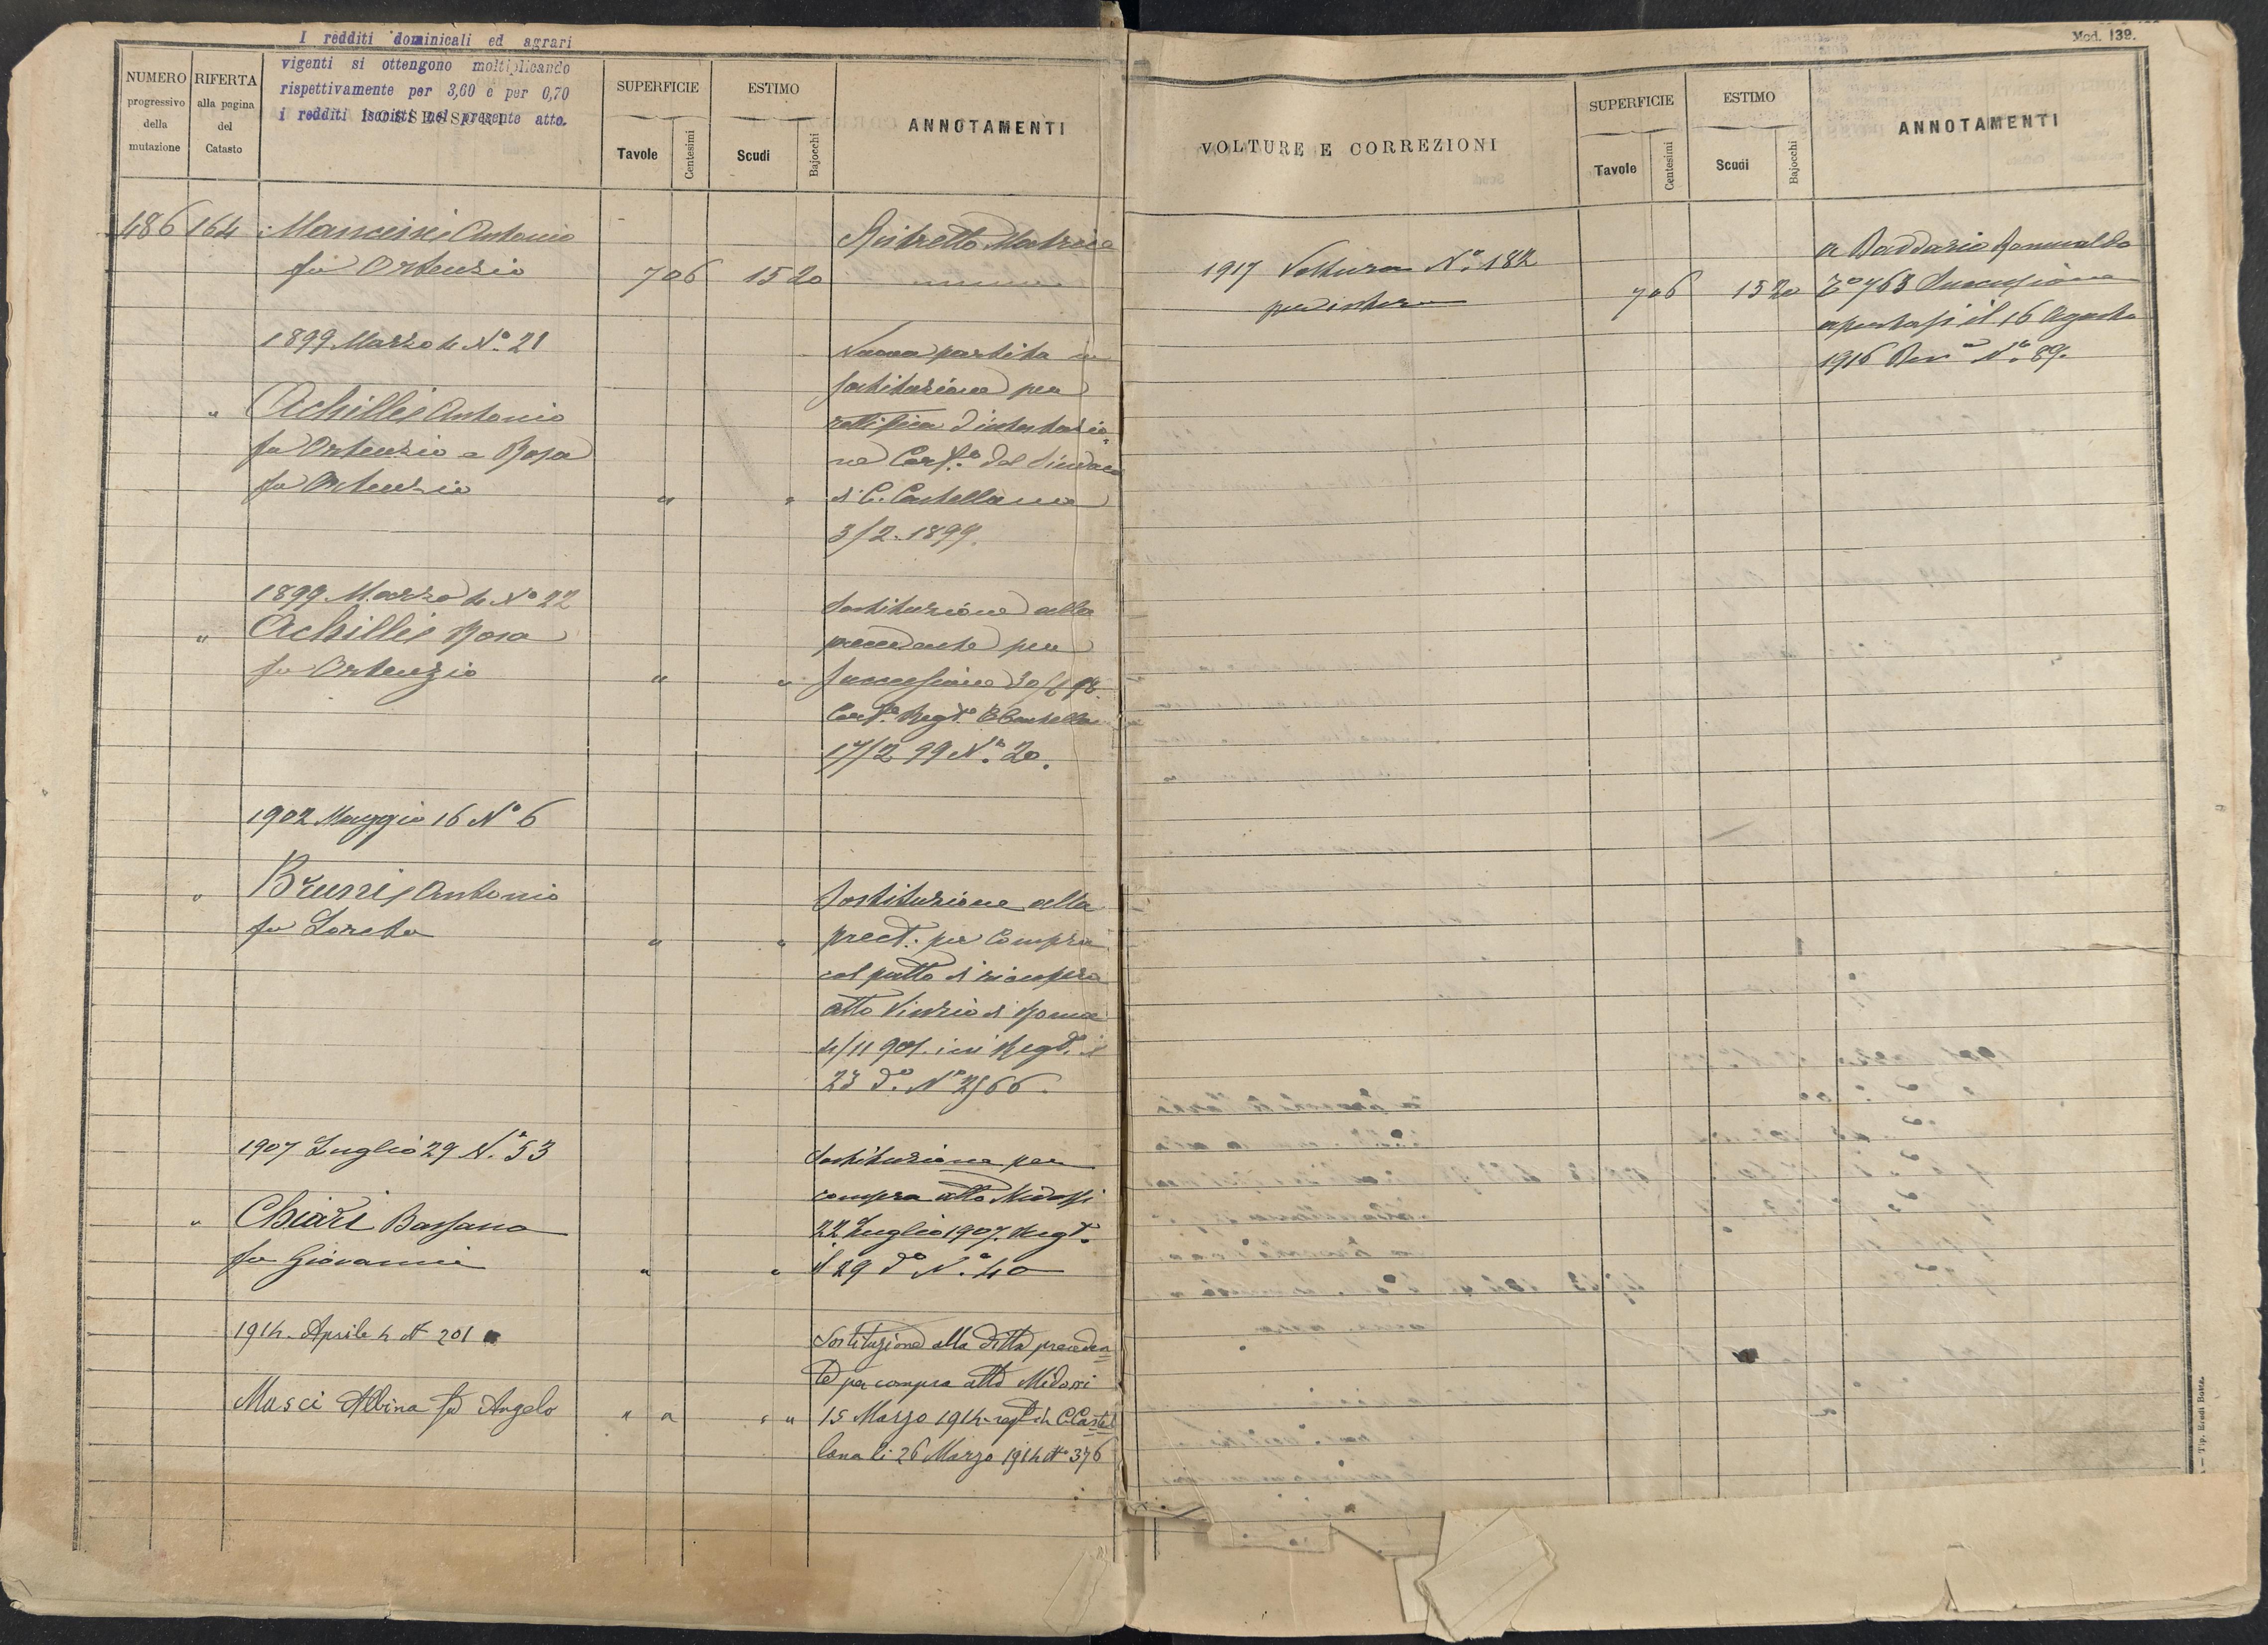 I redditi dominicali ed agrari
vigenti si ottengono moltiplicando
rispettivamente per 3,60 e per 0,70
i redditi iscritti nel presente atto.
NUMERO
progressivo
della
mutazione
RIFERTA
alla pagina
del
Catasto
POSSESSORI
SUPERFICIE
Tavole
Centesimi
ESTIMO
Scudi
Bajocchi
ANNOTAMENTI
486 164 Mancini Antonio
fu Ortenzio
7 06 15 20
Ristretto Matrice
1899 Marzo 4 N.° 21
Nuova partita in
sostituzione per
rettifica d'intestazio
ne Cert.° del Sindaco
di C. Castellana
3/2 1899.
" Achilli Antonio
fu Ortenzio e Rosa
fu Ortenzio
" "
1899 Marzo 4 N° 22
" Achilli Rosa
fu Ortenzio
" "
Sostituzione alla
precedente per
successione
Cert.° Reg.° C Castellana
17/2 99 N.° 20.
1902 Maggio 16 N° 6
" Bruni Antonio
fu Loreto
" "
Sostituzione alla
preced. per Compra
col patto di ricupera
atto Vinzio di Roma
4/11 901. ivi Reg.° il
23 d.° N° 2566.
1907 Luglio 29 N.° 53
" Chiari Bassano
fu Giovanni
" "
Sostituzione per
compra atto Midossi
22 Luglio 1907. Regt.°
il 29 d° N.° 40
1914. Aprile 4 N° 201
Masci Albina fu Angelo
" " " "
Sostituzione alla ditta preceden
te per compra atto Midossi
15 Marzo 1914 regt° in C. Castel
lana li 26 Marzo 1914 N° 376
Mod. 139.
VOLTURE E CORREZIONI
SUPERFICIE
Tavole
Centesimi
ESTIMO
Scudi
Bajocchi
ANNOTAMENTI
1917 Voltura N.° 182
per intero
7 06 15 20
a Baddario Romualdo
T° 763 Successione
apertasi il 16 Agosto
1916 Den N.° 89.
— Tip. Eredi Botta.